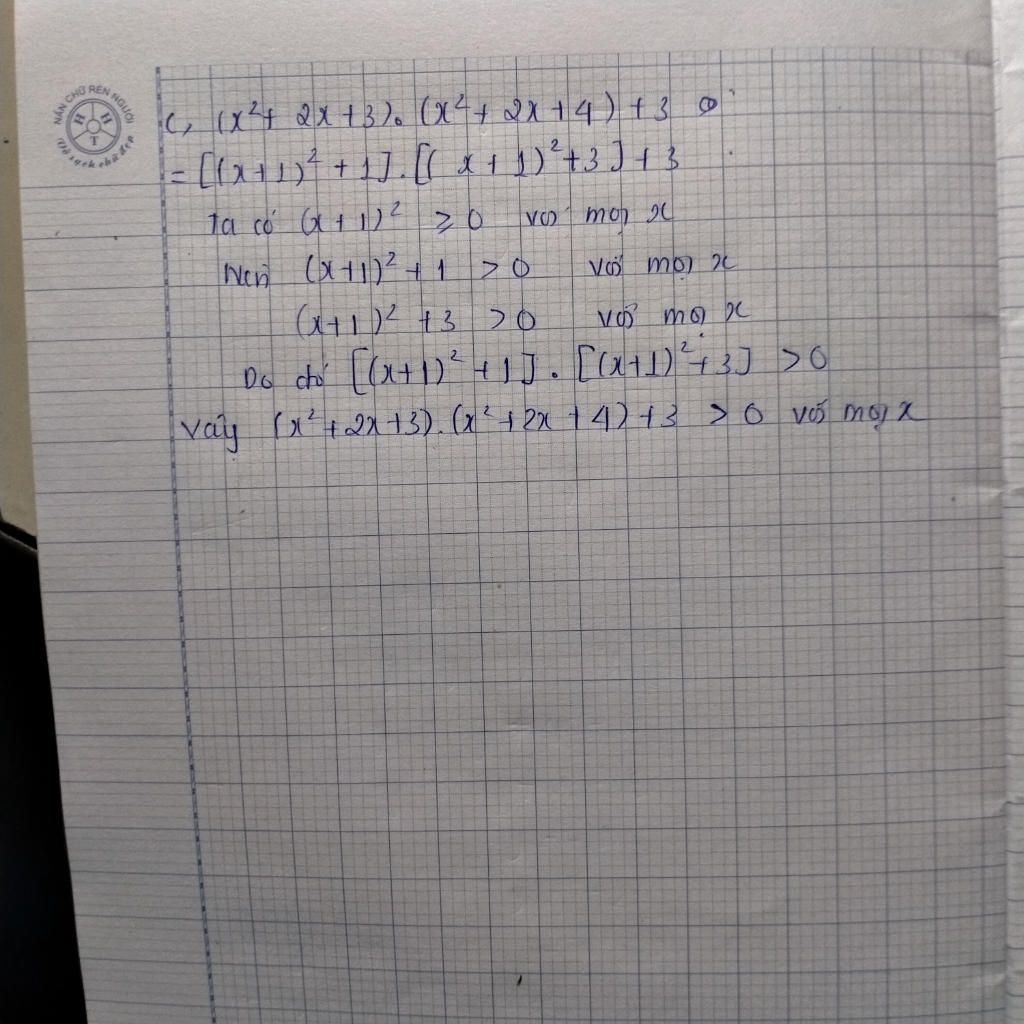 NẮN CHỮ RÈN NGƯỜI
H H T
Vở sạch chữ đẹp
c, (x² + 2x + 3). (x² + 2x + 4) + 3
= [(x+1)² + 1].[(x + 1)² + 3] + 3
Ta có (x + 1)² ≥ 0 với mọi x
Nên (x+1)² + 1 > 0 với mọi x
(x+1)² + 3 > 0 với mọi x
Do đó [(x+1)² + 1]. [(x+1)² + 3] > 0
Vậy (x² + 2x + 3).(x² + 2x + 4) + 3 > 0 với mọi x